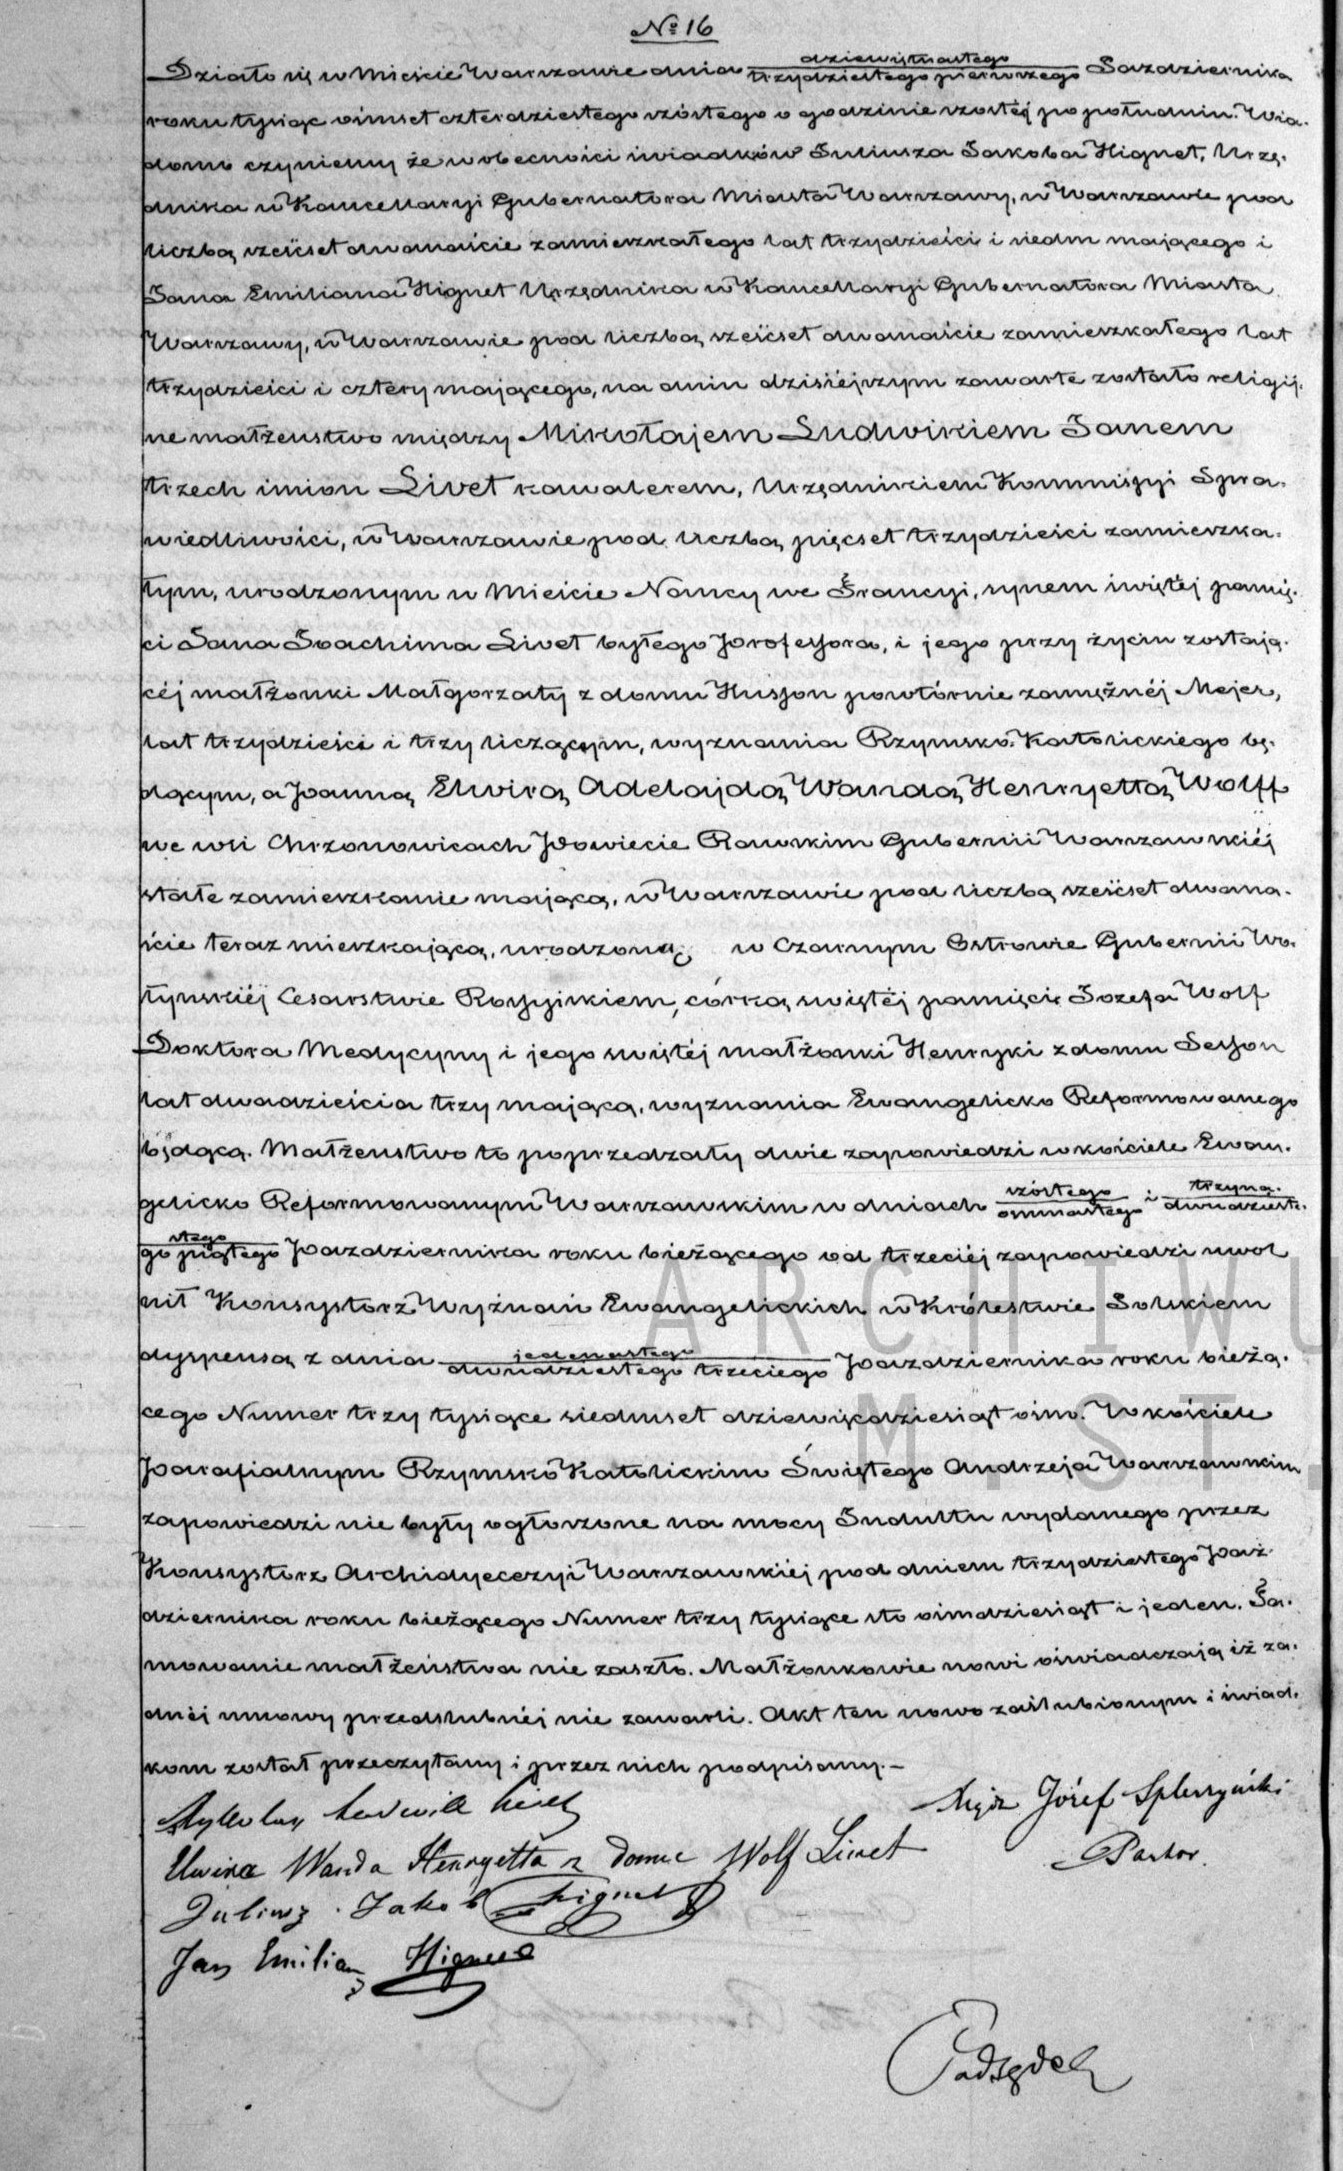 № 16
dziewiętnastego
Działo się w Mieście Warszawie dnia trzydziestego pierwszego Pazdziernika
roku tysiąc ośmset czterdziestego szóstego o godzinie szóstéj po południu. Wia-
domo czyniemy że w obecności świadków Juliusza Jakoba Hignet, Urzę-
dnika w Kancellaryi Gubernatora Miasta Warszawy, w Warszawie pod
liczbą sześćset dwanaście zamieszkałego lat trzydzieści i siedm mającego i
Jana Emiliana Hignet Urzędnika w Kancellaryi Gubernatora Miasta
Warszawy, w Warszawie pod liczbą sześćset dwanaście zamieszkałego lat
trzydzieści i cztery mającego, na dniu dzisiéjszym zawarte zostało religij-
ne małżenstwo między Mikołajem Ludwikiem Janem
trzech imion Livet kawalerem, Urzędnikiem Kommissyi Spra-
wiedliwości, w Warszawie pod liczbą pięcset trzydzieści zamieszka-
łym, urodzonym w Mieście Nancy we Francyi, synem świętéj pamię-
ci Jana Joachima Livet byłego Professora, i jego przy życiu zostają-
céj małżonki Małgorzaty z domu Husson powtórnie zamężnéj Mejer,
lat trzydzieści i trzy liczącym, wyznania Rzymsko-Katolickiego bę-
dącym, a Panną Elwirą Adelajdą Wandą Henryettą Wolff
we wsi Chrzonowicach Powiecie Rawskim Gubernii Warszawskiéj
stałe zamieszkanie mającą, w Warszawie pod liczbą sześćset dwana-
ście teraz mieszkającą, urodzoną w Czarnym Ostrowie Gubernii Wo-
łyńskiéj Cesarstwie Rossyiskiem, córką świętéj pamięci Jozefa Wolf
Doktora Medycyny i jego świętéj małżonki Henryki z domu Sesson
lat dwadzieścia trzy mającą, wyznania Ewangelicko Reformowanego
będącą. Małżenstwo to poprzedzały dwie zapowiedzi w kościele Ewan-
gelicko Reformowanym Warszawskim w dniach szóstego osmnastego i trzyna- dwudzieste-
stego
go piątego Pazdziernika roku bieżącego od trzeciéj zapowiedzi uwol
nił Konsystorz Wyznań Ewangelickich w Królestwie Polskiem
dyspensą z dnia jedenastego dwudziestego trzeciego Pazdziernika roku bieżą-
cego Numer trzy tysiące siedmset dziewięćdziesiąt ośm. W kościele
Parafialnym Rzymsko Katolickim Świętego Andrzeja Warszawskim
zapowiedzi nie były ogłoszone na mocy Indultu wydanego przez
Konsystorz Archidyecezyi Warszawskiéj pod dniem trzydziestego Paź-
dziernika roku bieżącego Numer trzy tysiące sto ośmdziesiąt i jeden. Ta-
mowanie małżeństwa nie zaszło. Małżonkowie nowi oświadczają iż ża-
dnéj umowy przedślubnéj nie zawarli. Akt ten nowo zaślubionym i świad-
kom został przeczytany i przez nich podpisany. —
Mykołay Ludwik Livet
Xiądz Józef Spleszyński
Pastor.
Elwira Wanda Henryetta z domu Wolf Livet
Juliusz Jakob Hignet
Jan Emilian Hignet
Podsędek
ARCHIWU
M. ST.